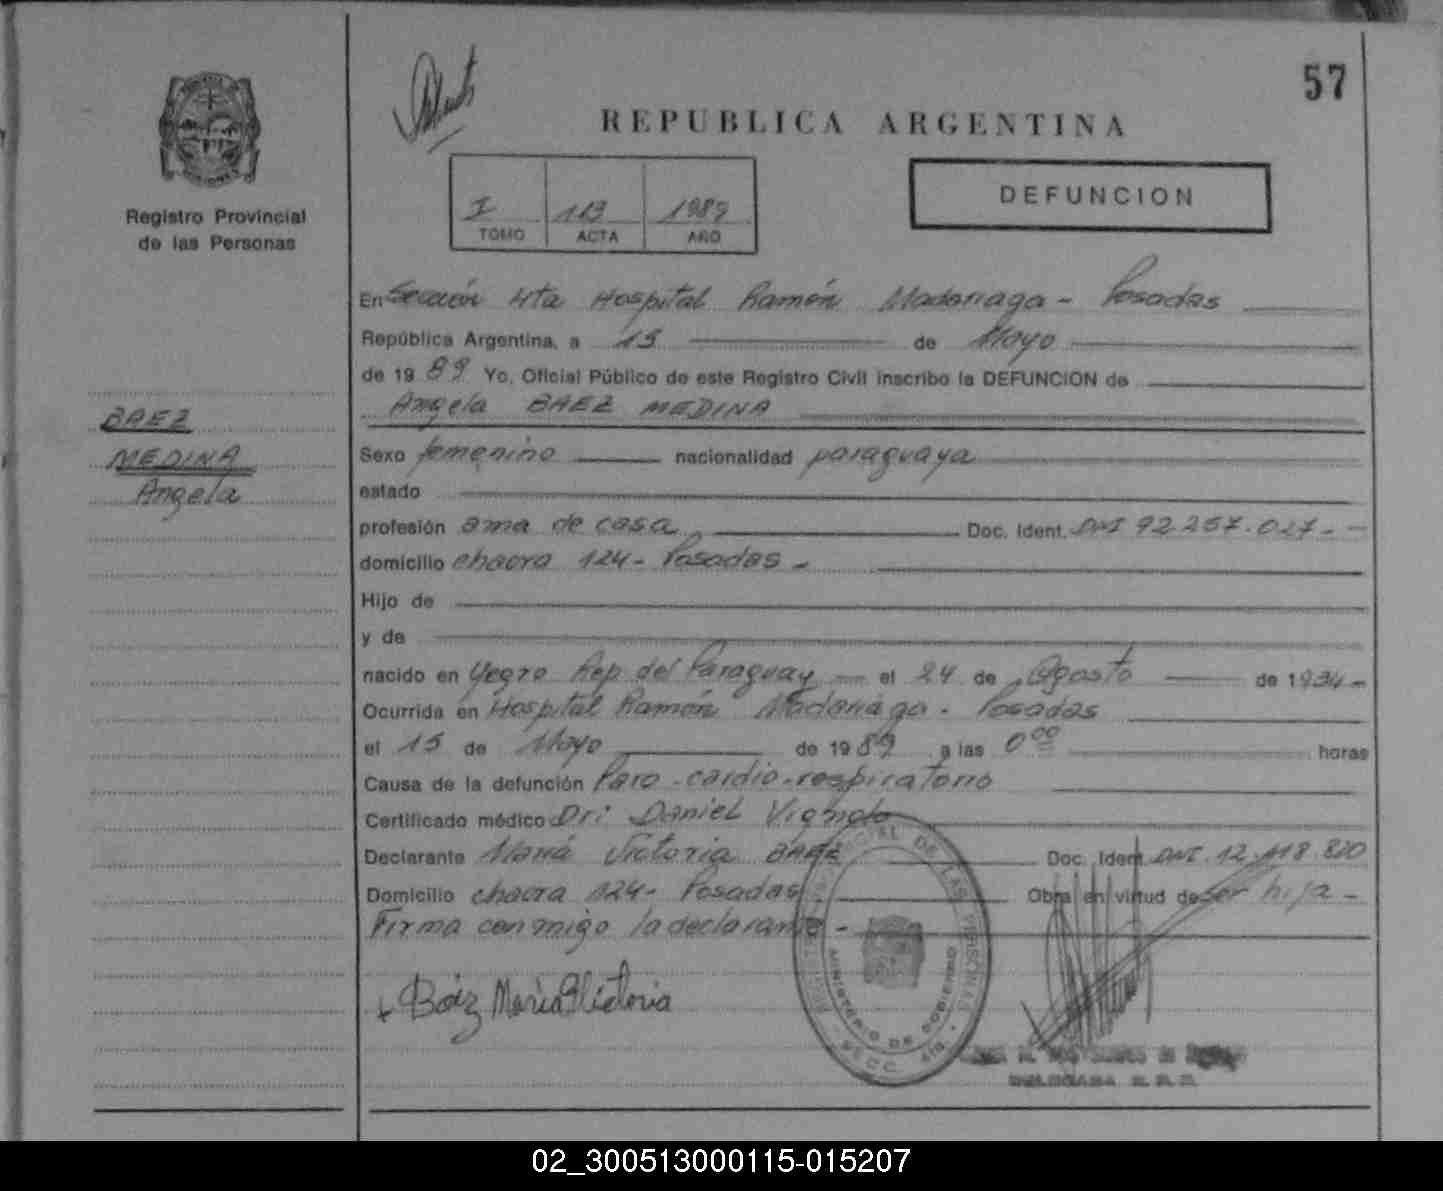 57
REPUBLICA ARGENTINA
DEFUNCION
I 113 1989
TOMO ACTA AÑO
Registro Provincial
de las Personas
BAEZ
MEDINA
Angela
En Sección 4ta Hospital Ramón Madariaga - Posadas
República Argentina, a 15 de Mayo
de 1989 Yo, Oficial Público de este Registro Civil inscribo la DEFUNCION de
Angela BAEZ MEDINA
Sexo femenino nacionalidad paraguaya
estado
profesión ama de casa Doc. Ident. DNI 92.257.027.-
domicilio chacra 124 - Posadas -
Hijo de
y de
nacido en Yegro Rep. del Paraguay el 24 de Agosto de 1934-
Ocurrida en Hospital Ramón Madariaga - Posadas
el 15 de Mayo de 1989 a las 0 00 horas
Causa de la defunción Paro-cardio-respiratorio
Certificado médico Dr: Daniel
Declarante María Victoria BAEZ Doc. Ident. DNI 12.118.820
Domicilio chacra 124- Posadas Obra en virtud de ser hija -
Firma conmigo la declarante -
Baez Maria Victoria
REGISTRO PROVINCIAL DE LAS PERSONAS
MINISTERIO DE GOBIERNO
SECC. 4ta
DELEGADA R. P. P.
02_300513000115-015207